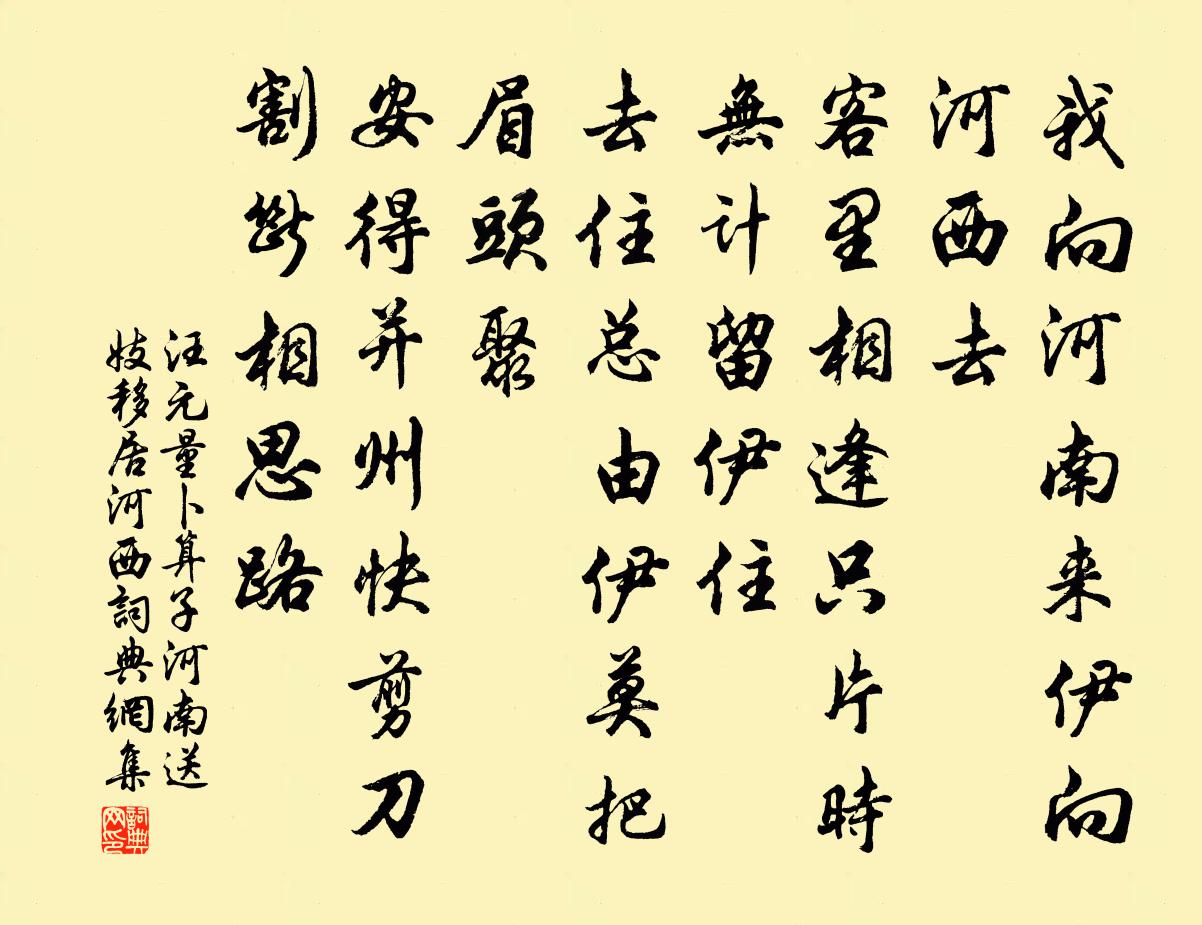 我向河南来伊向
河西去
客里相逢只片時
無計留伊住
去住总由伊莫把
眉頭聚
安得并州快剪刀
割斷相思路
汪元量卜算子河南送
妓移居河西詞典網集
詞典
网印